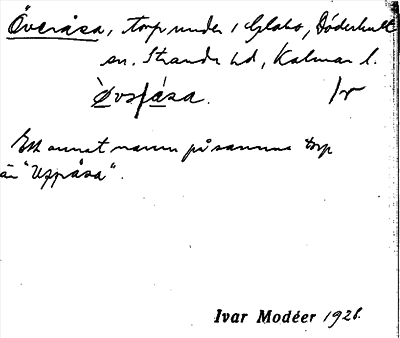 Överåsa, torp under Glabo, Döderhult
sn. Stranda hd, Kalmar l.
Övråsa. Ir
Ett annat namn på samma torp
är "Uppåsa".
Ivar Modéer 1928.